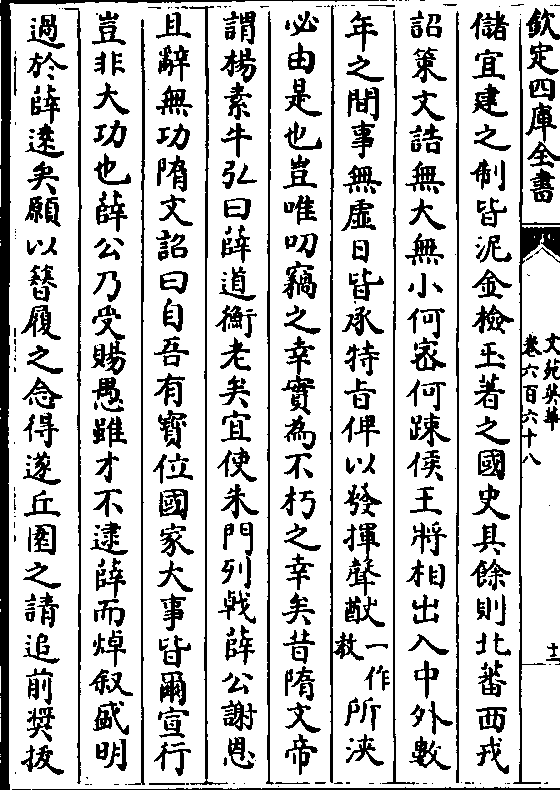 欽定四庫全書
文苑英華
卷六百六十八
十二
儲宜建之制皆泥金檢玉著之國史其餘則北蕃西戎
詔策文誥無大無小何密何踈侯王將相出入中外數
年之間事無虛日皆承特旨俾以發揮聲猷一作教所浹
必由是也豈唯叨竊之幸實為不朽之幸矣昔隋文帝
謂楊素牛弘曰薛道衡老矣宜使朱門列㦸薛公謝恩
且辭無功隋文詔曰自吾有寳位國家大事皆爾宣行
豈非大功也薛公乃受賜愚雖才不逮薛而焯叙盛明
過於薛逺矣願以簪履之念得遂丘園之請追前奬拔